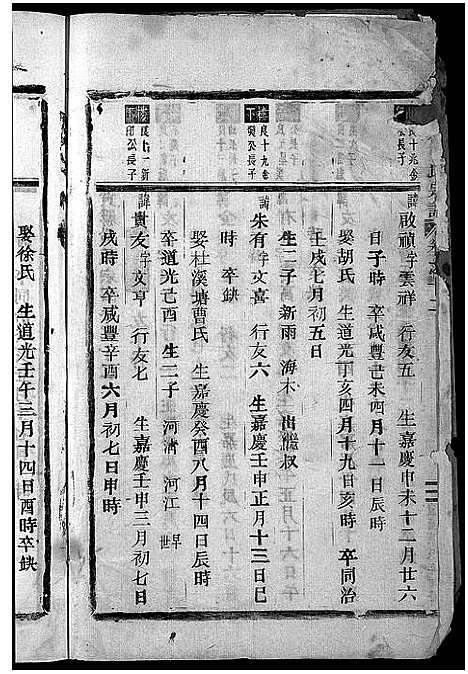 諱啟禎字雲祥 行友五 生嘉慶申未十二月廿六
日子時 卒咸豐己未四月十一日辰時
娶胡氏 生道光丁亥四月十九日亥時 卒同治
壬戌七月初五日
生二子新雨 海木 出繼叔
諱朱有字文喜 行友六 生嘉慶壬申正月十三日巳
時 卒缺
娶杜溪塘曹氏 生嘉慶癸酉八月十四日辰時
卒道光己酉 生二子 河清 河江 早世
諱貴友字文亨 行友七 生嘉慶壬申三月初七日
戌時 卒咸豐辛酉六月初七日申時
娶徐氏 生道光壬午三月十四日酉時卒缺